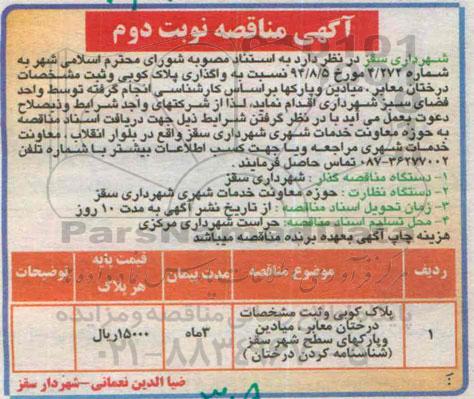 آگهی مناقصه نوبت دوم
شهرداری سقز در نظر دارد به استناد مصوبه شورای محترم اسلامی شهر به
شماره ۲/۲۷۲ مورخ ۹۴/۸/۵ نسبت به واگذاری پلاک کوبی وثبت مشخصات
درختان معابر ، میادین وپارکها براساس کارشناسی انجام گرفته توسط واحد
فضای سبز شهرداری اقدام نماید، لذا از شرکتهای واجد شرایط وذیصلاح
دعوت بعمل می آید با در نظر گرفتن شرایط ذیل جهت دریافت اسناد مناقصه
به حوزه معاونت خدمات شهری شهرداری سقز واقع در بلوار انقلاب ، معاونت
خدمات شهری مراجعه ویا جهت کسب اطلاعات بیشتر با شماره تلفن
۰۸۷-۳۶۲۷۷۰۰۲ تماس حاصل فرمایند.
۱- دستگاه مناقصه گذار : شهرداری سقز
۲- دستگاه نظارت : حوزه معاونت خدمات شهری شهرداری سقز
۳- زمان تحویل اسناد مناقصه : از تاریخ نشر آگهی به مدت ۱۰ روز
۴- محل تسلیم اسناد مناقصه: حراست شهرداری مرکزی
هزینه چاپ آگهی بعهده برنده مناقصه میباشد
ردیف موضوع مناقصه مدت پیمان قیمت پایه هر پلاک توضیحات
۱ پلاک کوبی وثبت مشخصات
درختان معابر ، میادین
وپارکهای سطح شهر سقز
(شناسنامه کردن درختان )
۳ماه ۱۵۰۰۰ریال
ضیا الدین نعمانی–شهردار سقز